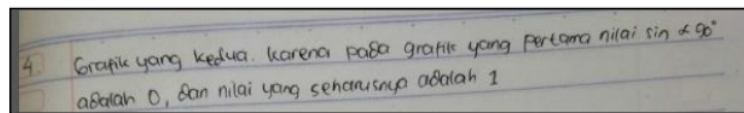 4. Grafik yang kedua. karena pada grafik yang pertama nilai sin α 90°
adalah 0, dan nilai yang seharusnya adalah 1